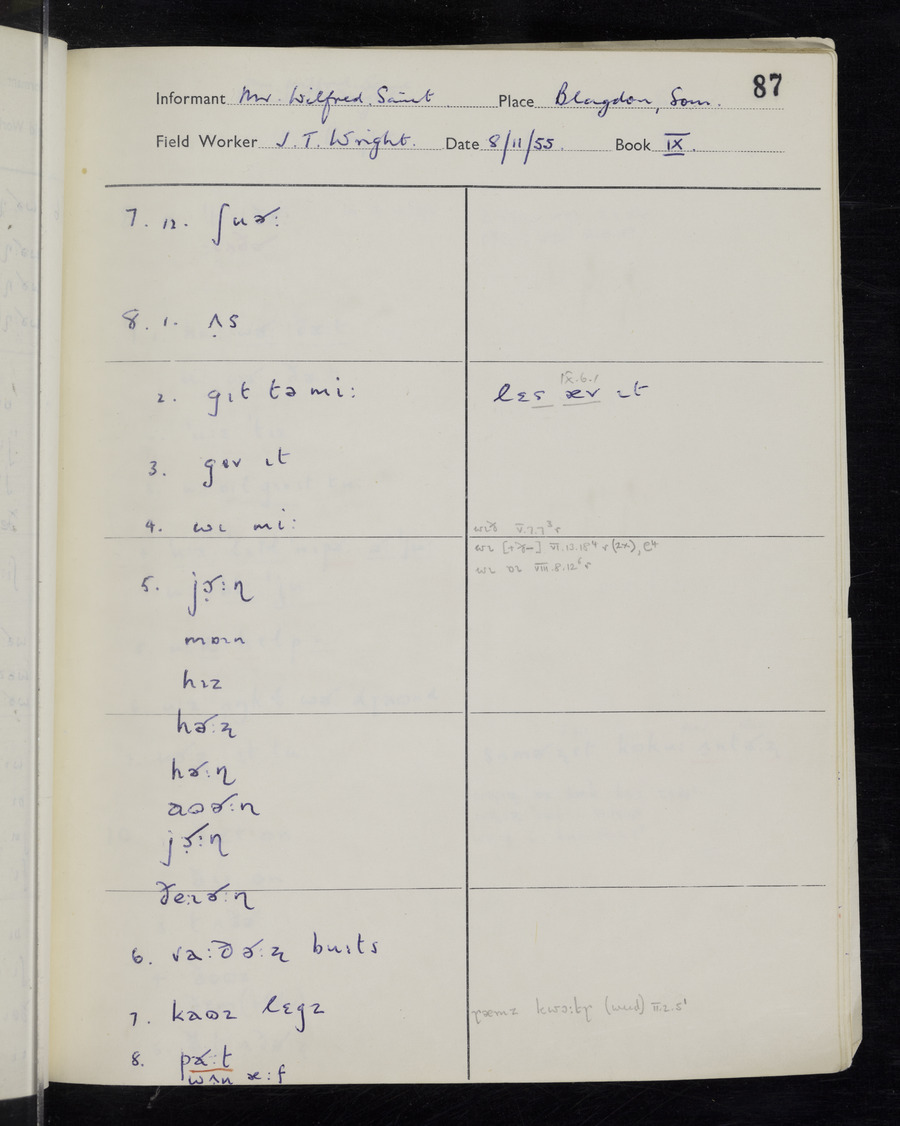 87
Informant Mr. Wilfred Saint Place Blagdon, Som.
Field Worker J. T. Wright. Date 8/11/55. Book IX.
7. 12. ʃuɚ:
8. 1. ʌ̣s
2. gɪt tə mi: lɛs ævɪt
IX.6.1
3. gɪv ɪt
4. wɪ mi: wɪð V.7.7³r
wɪ [+ð-] VI.13.18⁴r (2x), e⁴
wɪ
VIII.8.12⁵r
5. jɔ̣˞:ɳ
mɒɪn
hɪz
hɚ:ʐ
hɚ:ɳ
aʊɚ:ɳ
jɔ̣˞:ɳ
ðeɪɚ:ɳ
6. va:ðɚ:ʐ bu:ts
7. kaʊz lɛgz
II.2.5¹
8. pɑ˞:t
wʌn æ:f